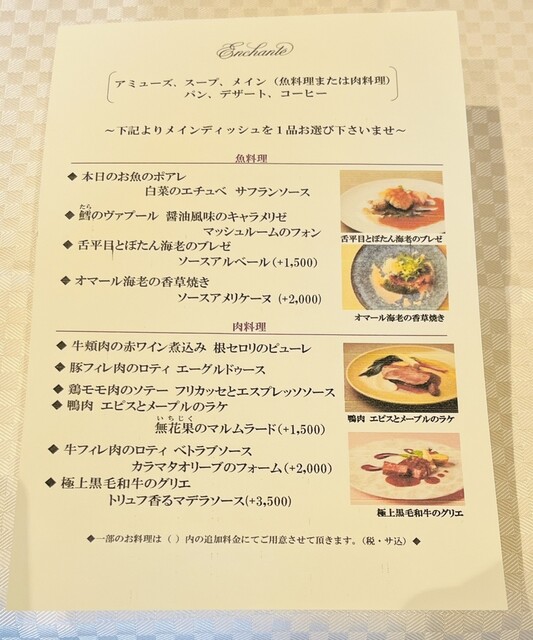 Enchante
アミューズ、スープ、メイン（魚料理または肉料理）
パン、デザート、コーヒー
～下記よりメインディッシュを１品お選び下さいませ～
魚料理
◆ 本日のお魚のポアレ
白菜のエチュベ サフランソース
たら
◆ 鱈のヴァプール 醤油風味のキャラメリゼ
マッシュルームのフォン
◆ 舌平目とぼたん海老のブレゼ
ソースアルベール（+1,500）
◆ オマール海老の香草焼き
ソースアメリケーヌ （+2,000）
舌平目とぼたん海老のブレゼ
オマール海老の香草焼き
肉料理
◆ 牛頬肉の赤ワイン煮込み 根セロリのピューレ
◆ 豚フィレ肉のロティ エーグルドゥース
◆ 鶏モモ肉のソテー フリカッセとエスプレッソソース
◆ 鴨肉 エピスとメープルのラケ
いちじく
無花果のマルムラード（+1,500）
◆ 牛フィレ肉のロティ ベトラブソース
カラマタオリーブのフォーム（+2,000）
◆ 極上黒毛和牛のグリエ
トリュフ香るマデラソース（+3,500）
鴨肉 エピスとメープルのラケ
極上黒毛和牛のグリエ
◆一部のお料理は（ ）内の追加料金にてご用意させて頂きます。（税・サ込）◆